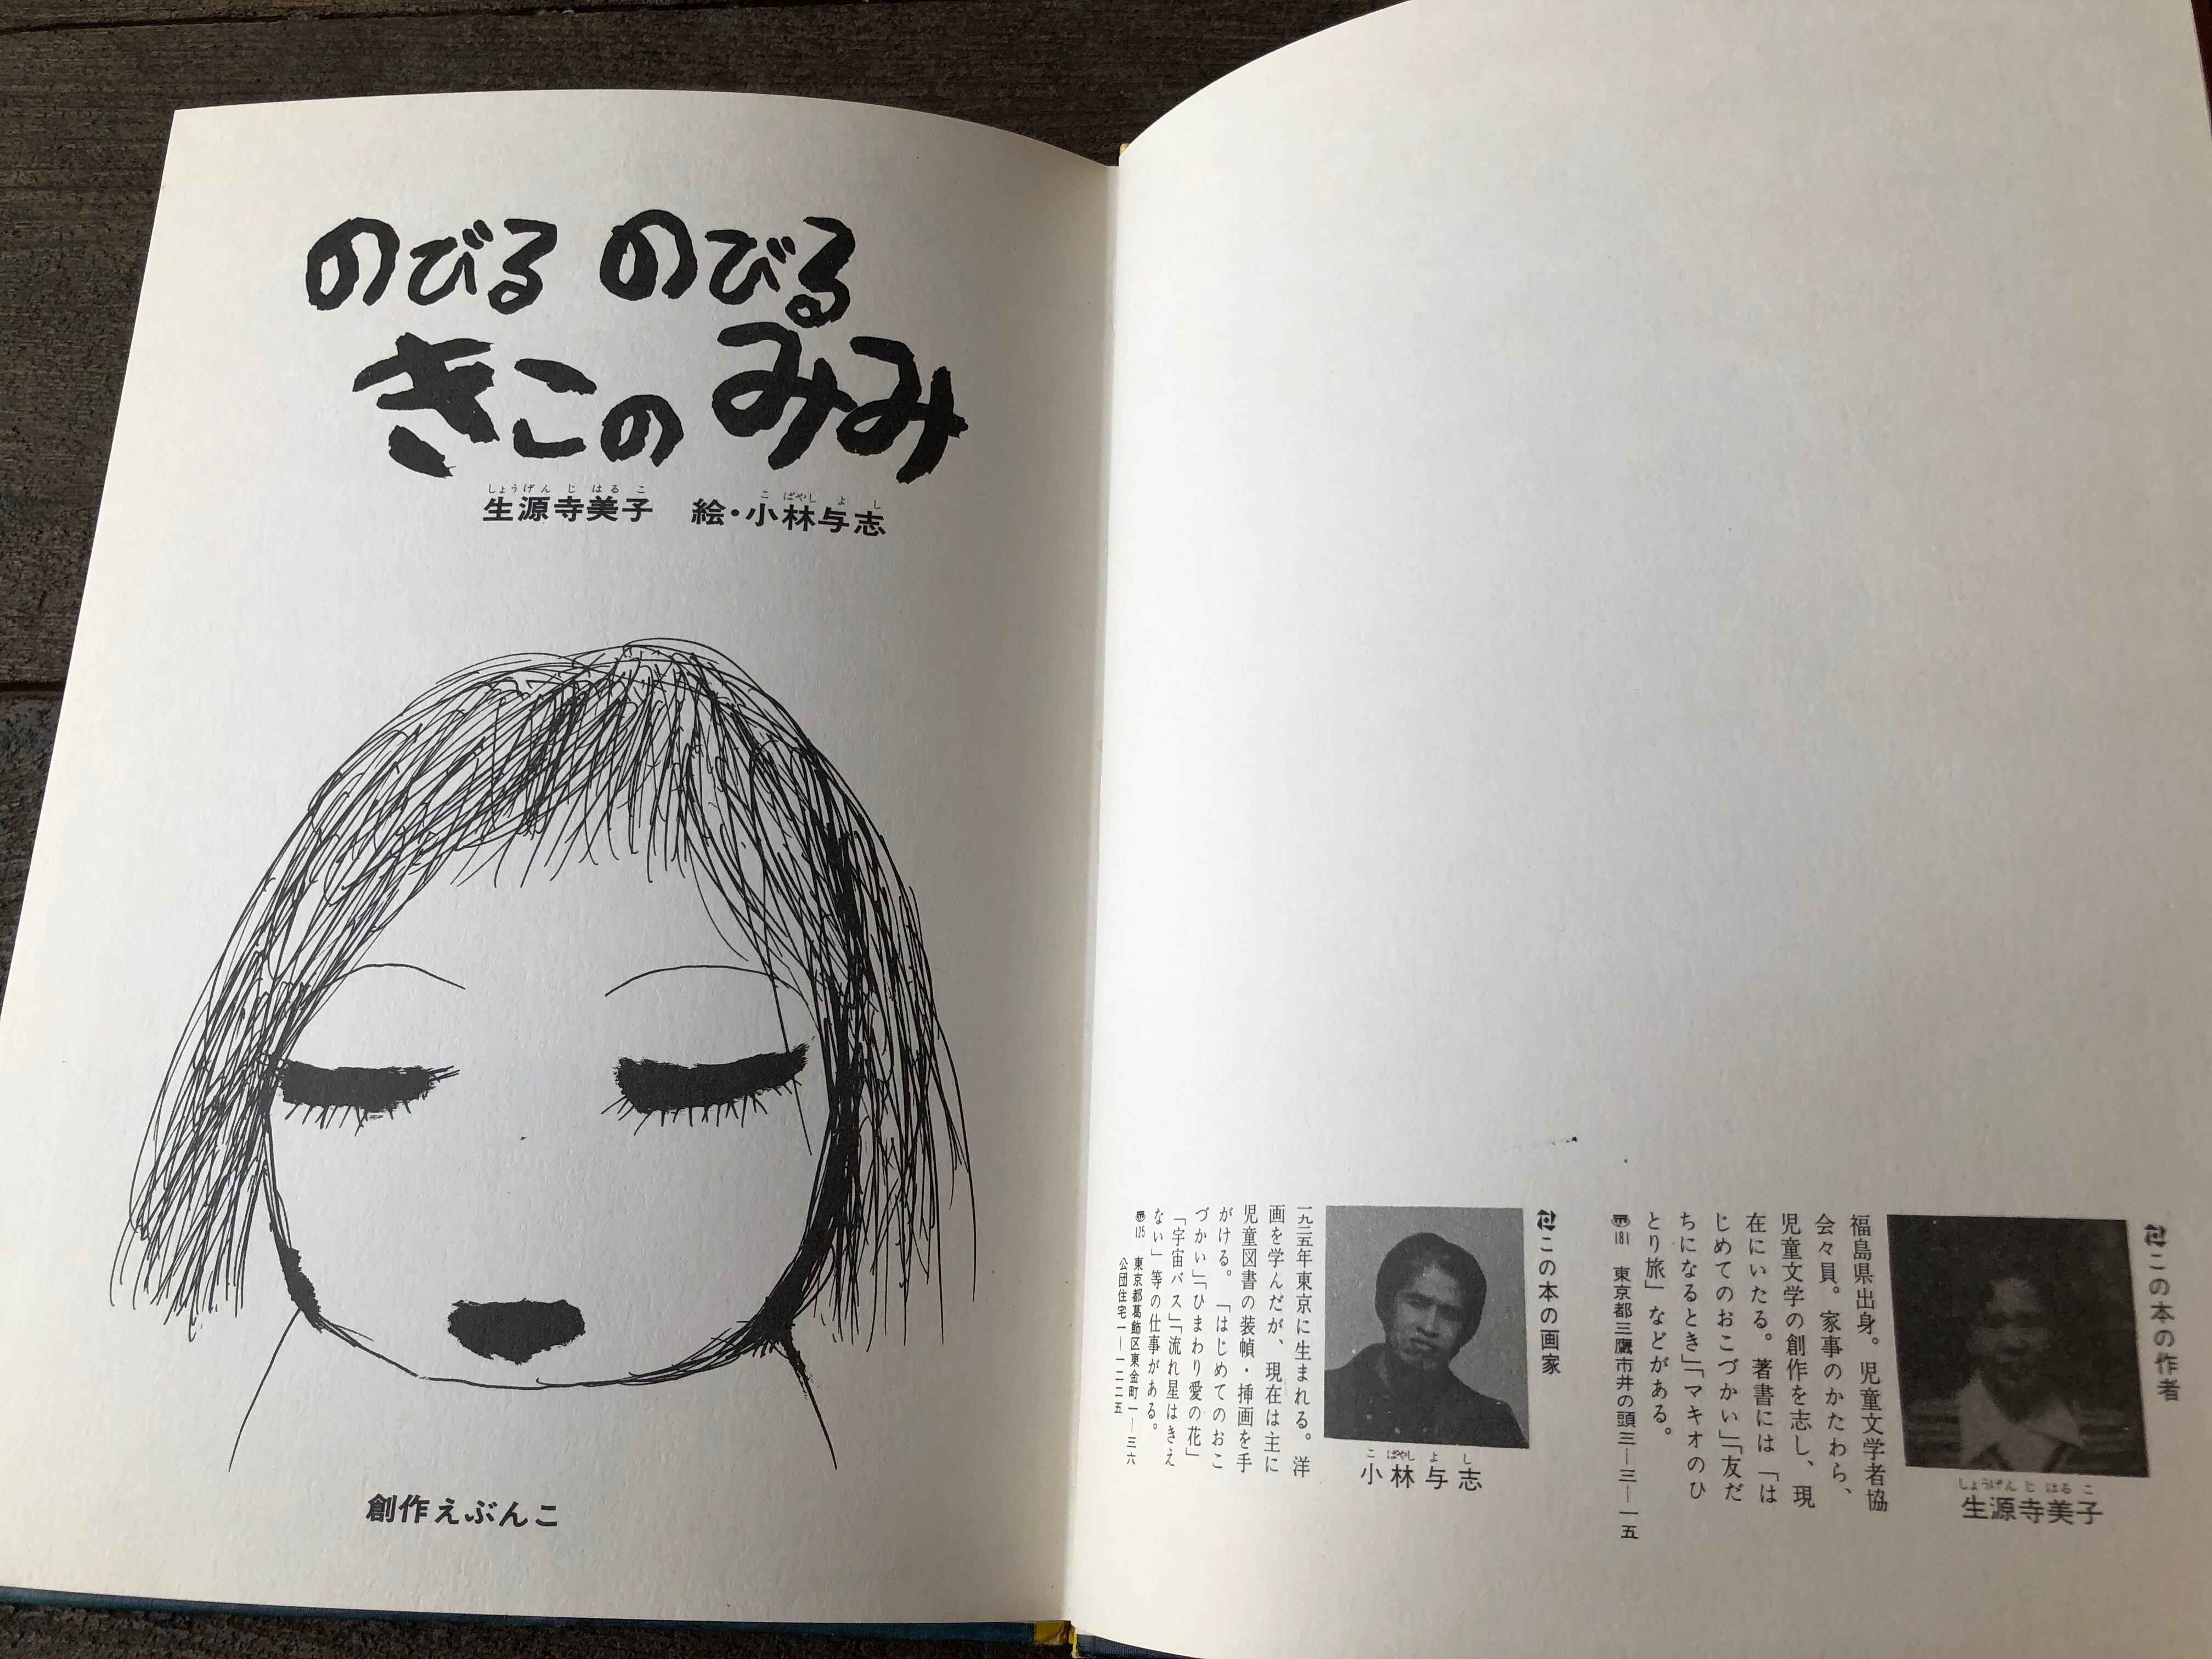 のびる のびる
きこの みみ
しょうげんじはるこ こばやしよし
生源寺美子 絵・小林与志
創作えぶんこ
この本の作者
しょうげんじはるこ
生源寺美子
福島県出身。児童文学者協
会々員。家事のかたわら、
児童文学の創作を志し、現
在にいたる。著書には「は
じめてのおこづかい」「友だ
ちになるとき」「マキオのひ
とり旅」などがある。
〠181 東京都三鷹市井の頭三—三—一五
この本の画家
こばやしよし
小林与志
一九二五年東京に生まれる。洋
画を学んだが、現在は主に
児童図書の装幀・挿画を手
がける。「はじめてのおこ
づかい」「ひまわり愛の花」
「宇宙バス」「流れ星はきえ
ない」等の仕事がある。
〠125 東京都葛飾区東金町一—三六
公団住宅一—一二二五